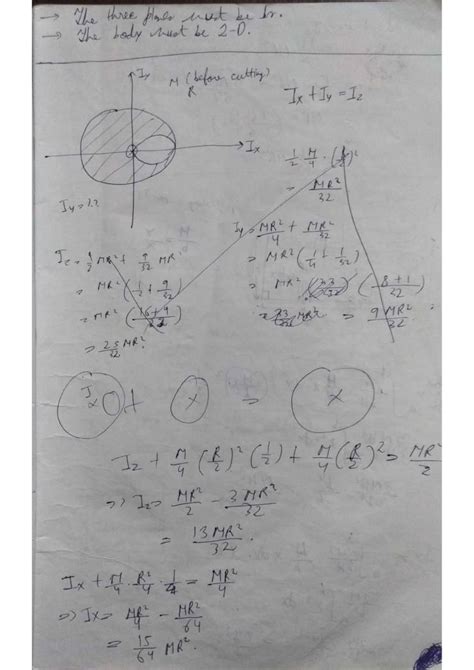 → The three must be
→ The body must be 2-D.
Iy
M (before cutting)
R
Ix + Iy = Iz
Ix
1/2 M/4 · (R/2)²
= MR²/32
Iy = ??
Iy = MR²/4 + MR²/32
= MR² (1/4 + 1/32)
= MR² (8+1/32)
= 9MR²/32
Iz = 1/2 MR² + 9/32 MR²
= MR² (1/2 + 9/32)
= MR² (16+9/32)
= 25/32 MR²
+ x = x
Iz + M/4 (R/2)² (1/2) + M/4 (R/2)² = MR²/2
=> Iz = MR²/2 - 3MR²/32
= 13MR²/32.
Ix + M/4 · R²/4 · 1/4 = MR²/4
=> Ix = MR²/4 - MR²/64
= 15/64 MR².